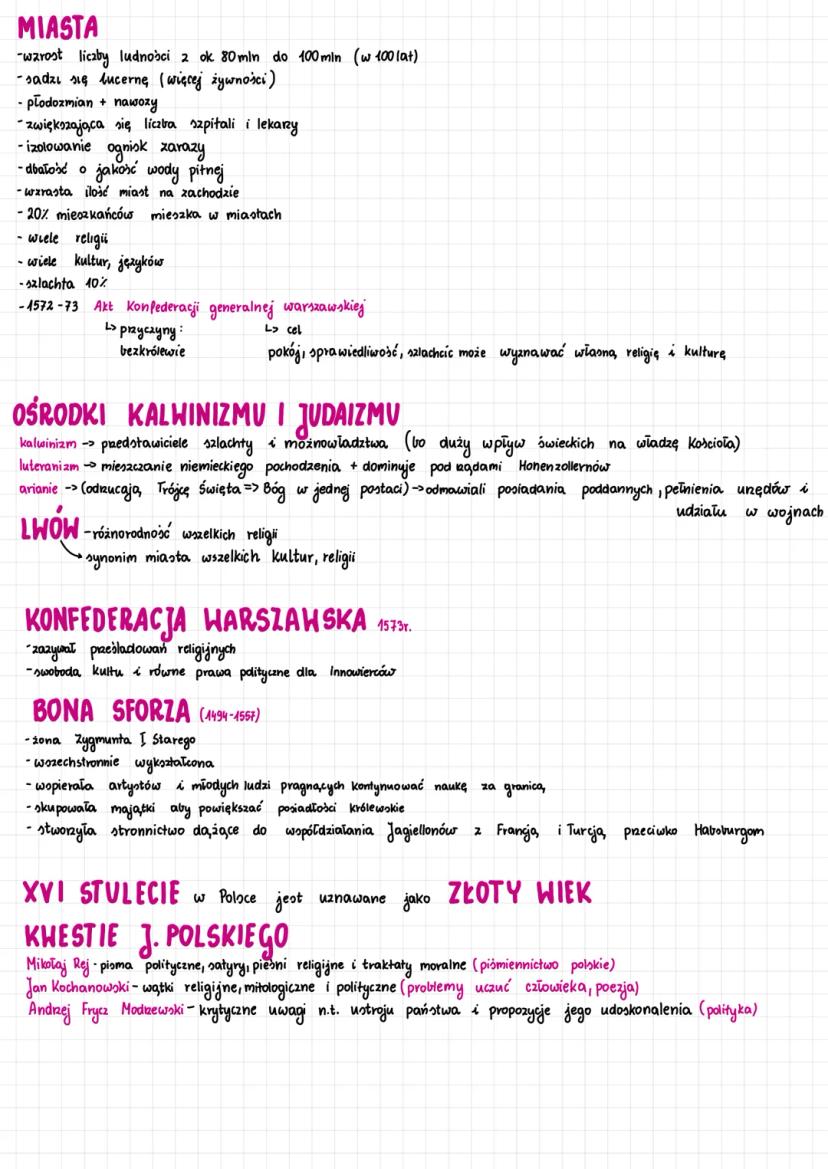 MIASTA
-wzrost liczby ludności z ok 80mln do 100mln (w 100lat)
-sadzi się lucernę (więcej żywności)
- płodozmian + nawozy
-zwiększająca się liczba szpitali i lekarzy
-izolowanie ognisk zarazy
-dbałość o jakość wody pitnej
-wzrasta ilość miast na zachodzie
- 20% mieszkańców mieszka w miastach
- wiele religii
- wiele kultur, języków
-szlachta 10%
-1572-73 Akt Konfederacji generalnej warszawskiej
↳ przyczyny: ↳ cel
bezkrólewie pokój, sprawiedliwość, szlachcic może wyznawać własną religię i kulturę
OŚRODKI KALWINIZMU I JUDAIZMU
kalwinizm -> przedstawiciele szlachty i możnowładztwa (bo duży wpływ świeckich na władzę Kościoła)
luteranizm -> mieszczanie niemieckiego pochodzenia + dominuje pod rządami Honenzollernów
arianie -> (odrzucają Trójcę Święta => Bóg w jednej postaci) -> odmawiali posiadania poddannych, pełnienia urzędów i
udziału w wojnach
LWÓW -różnorodność wszelkich religii
synonim miasta wszelkich kultur, religii
KONFEDERACJA WARSZAWSKA 1573r.
-zazywał prześladowań religijnych
-swoboda kultu i równe prawa polityczne dla innowierców
BONA SFORZA (1494-1557)
-żona Zygmunta I Starego
-wszechstronnie wykształcona
- wspierała artystów i młodych ludzi pragnących kontynuować naukę za granicą
-skupowała majątki aby powiększać posiadłości królewskie
- stworzyła stronnictwo dążące do współdziałania Jagiellonów z Francją i Turcją przeciwko Habsburgom
XVI STULECIE w Polsce jest uznawane jako ZŁOTY WIEK
KWESTIE J. POLSKIEGO
Mikołaj Rej - pisma polityczne, satyry, pieśni religijne i traktaty moralne (piśmiennictwo polskie)
Jan Kochanowski - wątki religijne, mitologiczne i polityczne (problemy uczuć człowieka, poezja)
Andrzej Frycz Modrzewski - krytyczne uwagi n.t. ustroju państwa i propozycje jego udoskonalenia (polityka)